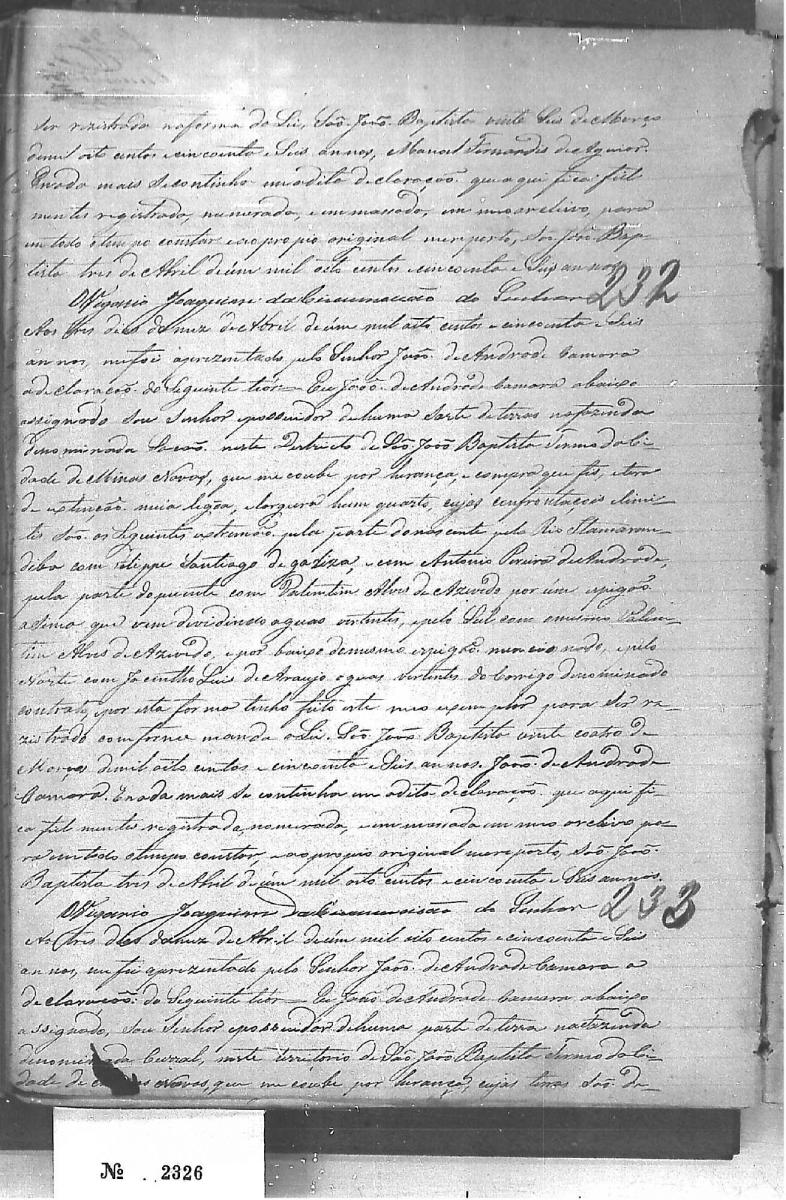 ser rezistrada naforma da Lei, São João Baptista vinte Seis de Março
demil oito centos e cincoenta e Seis annos, Manoel Fernandis de Aguiar.
Enada mais Secontinha na dita declaração que aqui fica fiel
mentes registrada, numerada, e em massada, em meo archivo, para
em todo o tempo constar e ao propio original me reporto, São João Bap-
tista tres de Abril de úm mil oito centos e cincoenta e Seis annos
OVigario Joaquim da Circumcisão do Senhor 232
Aos tres dias do mez de Abril de úm mil oito centos e cincoenta e Seis
annos, me foi aprezentado pelo Senhor João de Andrade Camara
a declaração do Seguinte tiór Eu João de Andrade Camara abaixo
assignado Sou Senhor epossuidor de huma Sorte de terras nafazenda
denominada neste Destricto de São João Baptista Termo da Ci-
dade de Minas Novas, que me coube por herança, e compra que fis, e tera
de extinção meia legoa, e largura hum quarto, cujas confrontacois e limi-
tes São os Seguintes extremão pela parte donascente pelo Rio Itamaran-
diba com Felippe Santiago de e com Antonio Pereira de Andrade,
pela parte dopuente com Valentim Alves de Azevedo por úm espigão
asima que vem devidindo aguas vertentes, e pelo Sul com omesmo Valen-
tim Alves de Azevedo, e por baixo do mesmo espigão mencionado, e pelo
Norte com Jacintho Luis de Araujo aguas vertentes do Corrigo denominado
contrato, e por esta forma tenho feito este meo exemplar para Ser re-
zistrado comforme manda a Lei. São João Baptista vinte coatro de
Março demil oito centos e cincoenta e Seis annos. João de Andrade
Camara. Enada mais Se continha na dita declaração que aqui fi-
ca fiel mentes registrada, numerada, e em massada em meo archivo pa-
ra em todo o tempo constar, e ao propio original me reporto, São João
Baptista tres de Abril de úm mil oito centos e cincoenta e Seis annos.
OVigario Joaquim da Circumcisão do Senhor 233
Aos tres dias do mez de Abril de úm mil oito centos e cincoenta e Seis
annos, me foi aprezentado pelo Senhor João de Andrade Camara a
declaração do Seguinte tiór Eu João de Andrade Camara abaixo
assignado, Sou Senhor epossuidor de huma parte de terra na Fazenda
denominada Curral, neste território de São João Baptista Termo da Ci-
dade de Minas Novas, que me coube por herança, cujas terras São de-
Nº 2326